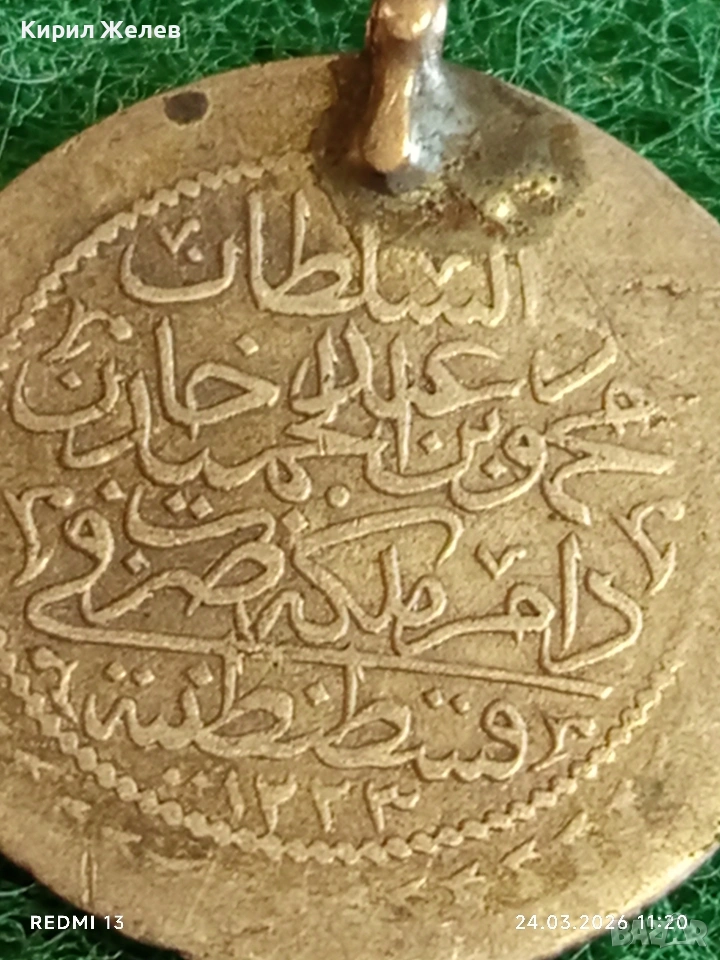 Кирил Желев
السلطان
محمود بن عبد الحميد خان
دام ملكه ضرب في
قسطنطنية
١٢٢٣
REDMI 13
24.03.2026 11:20
BAZAR